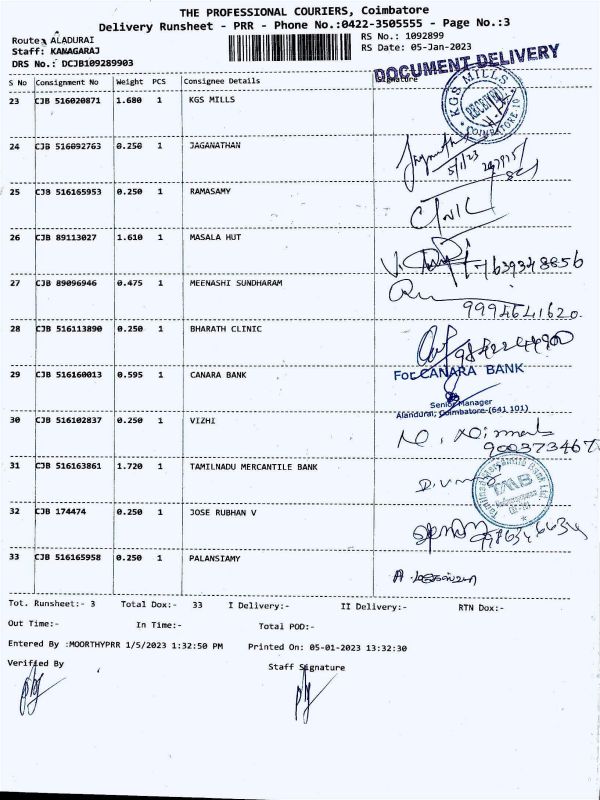 THE PROFESSIONAL COURIERS, Coimbatore
Delivery Runsheet - PRR - Phone No.:0422-3505555 - Page No.:3
Route: ALADURAI
RS No.: 1092899
Staff: KANAGARAJ
RS Date: 05-Jan-2023
DRS No.: DCJB109289903
DOCUMENT DELIVERY
S No Consignment No Weight PCS Consignee Details Signature
23 CJB 516020871 1.680 1 KGS MILLS
KGS MILLS RECEIVED COIMBATORE
24 CJB 516092763 0.250 1 JAGANATHAN
5/1/23
25 CJB 516165953 0.250 1 RAMASAMY
26 CJB 89113027 1.610 1 MASALA HUT
27 CJB 89096946 0.475 1 MEENASHI SUNDHARAM
9994641620.
28 CJB 516113890 0.250 1 BHARATH CLINIC
29 CJB 516160013 0.595 1 CANARA BANK
For CANARA BANK
Senior Manager
Alandurai, Coimbatore-(641 101)
30 CJB 516102837 0.250 1 VIZHI
31 CJB 516163861 1.720 1 TAMILNADU MERCANTILE BANK
Tamilnad Mercantile Bank Ltd TMB
32 CJB 174474 0.250 1 JOSE RUBHAN V
33 CJB 516165958 0.250 1 PALANSIAMY
Tot. Runsheet:- 3 Total Dox:- 33 I Delivery:- II Delivery:- RTN Dox:-
Out Time:- In Time:- Total POD:-
Entered By :MOORTHYPRR 1/5/2023 1:32:50 PM Printed On: 05-01-2023 13:32:30
Verified By Staff Signature